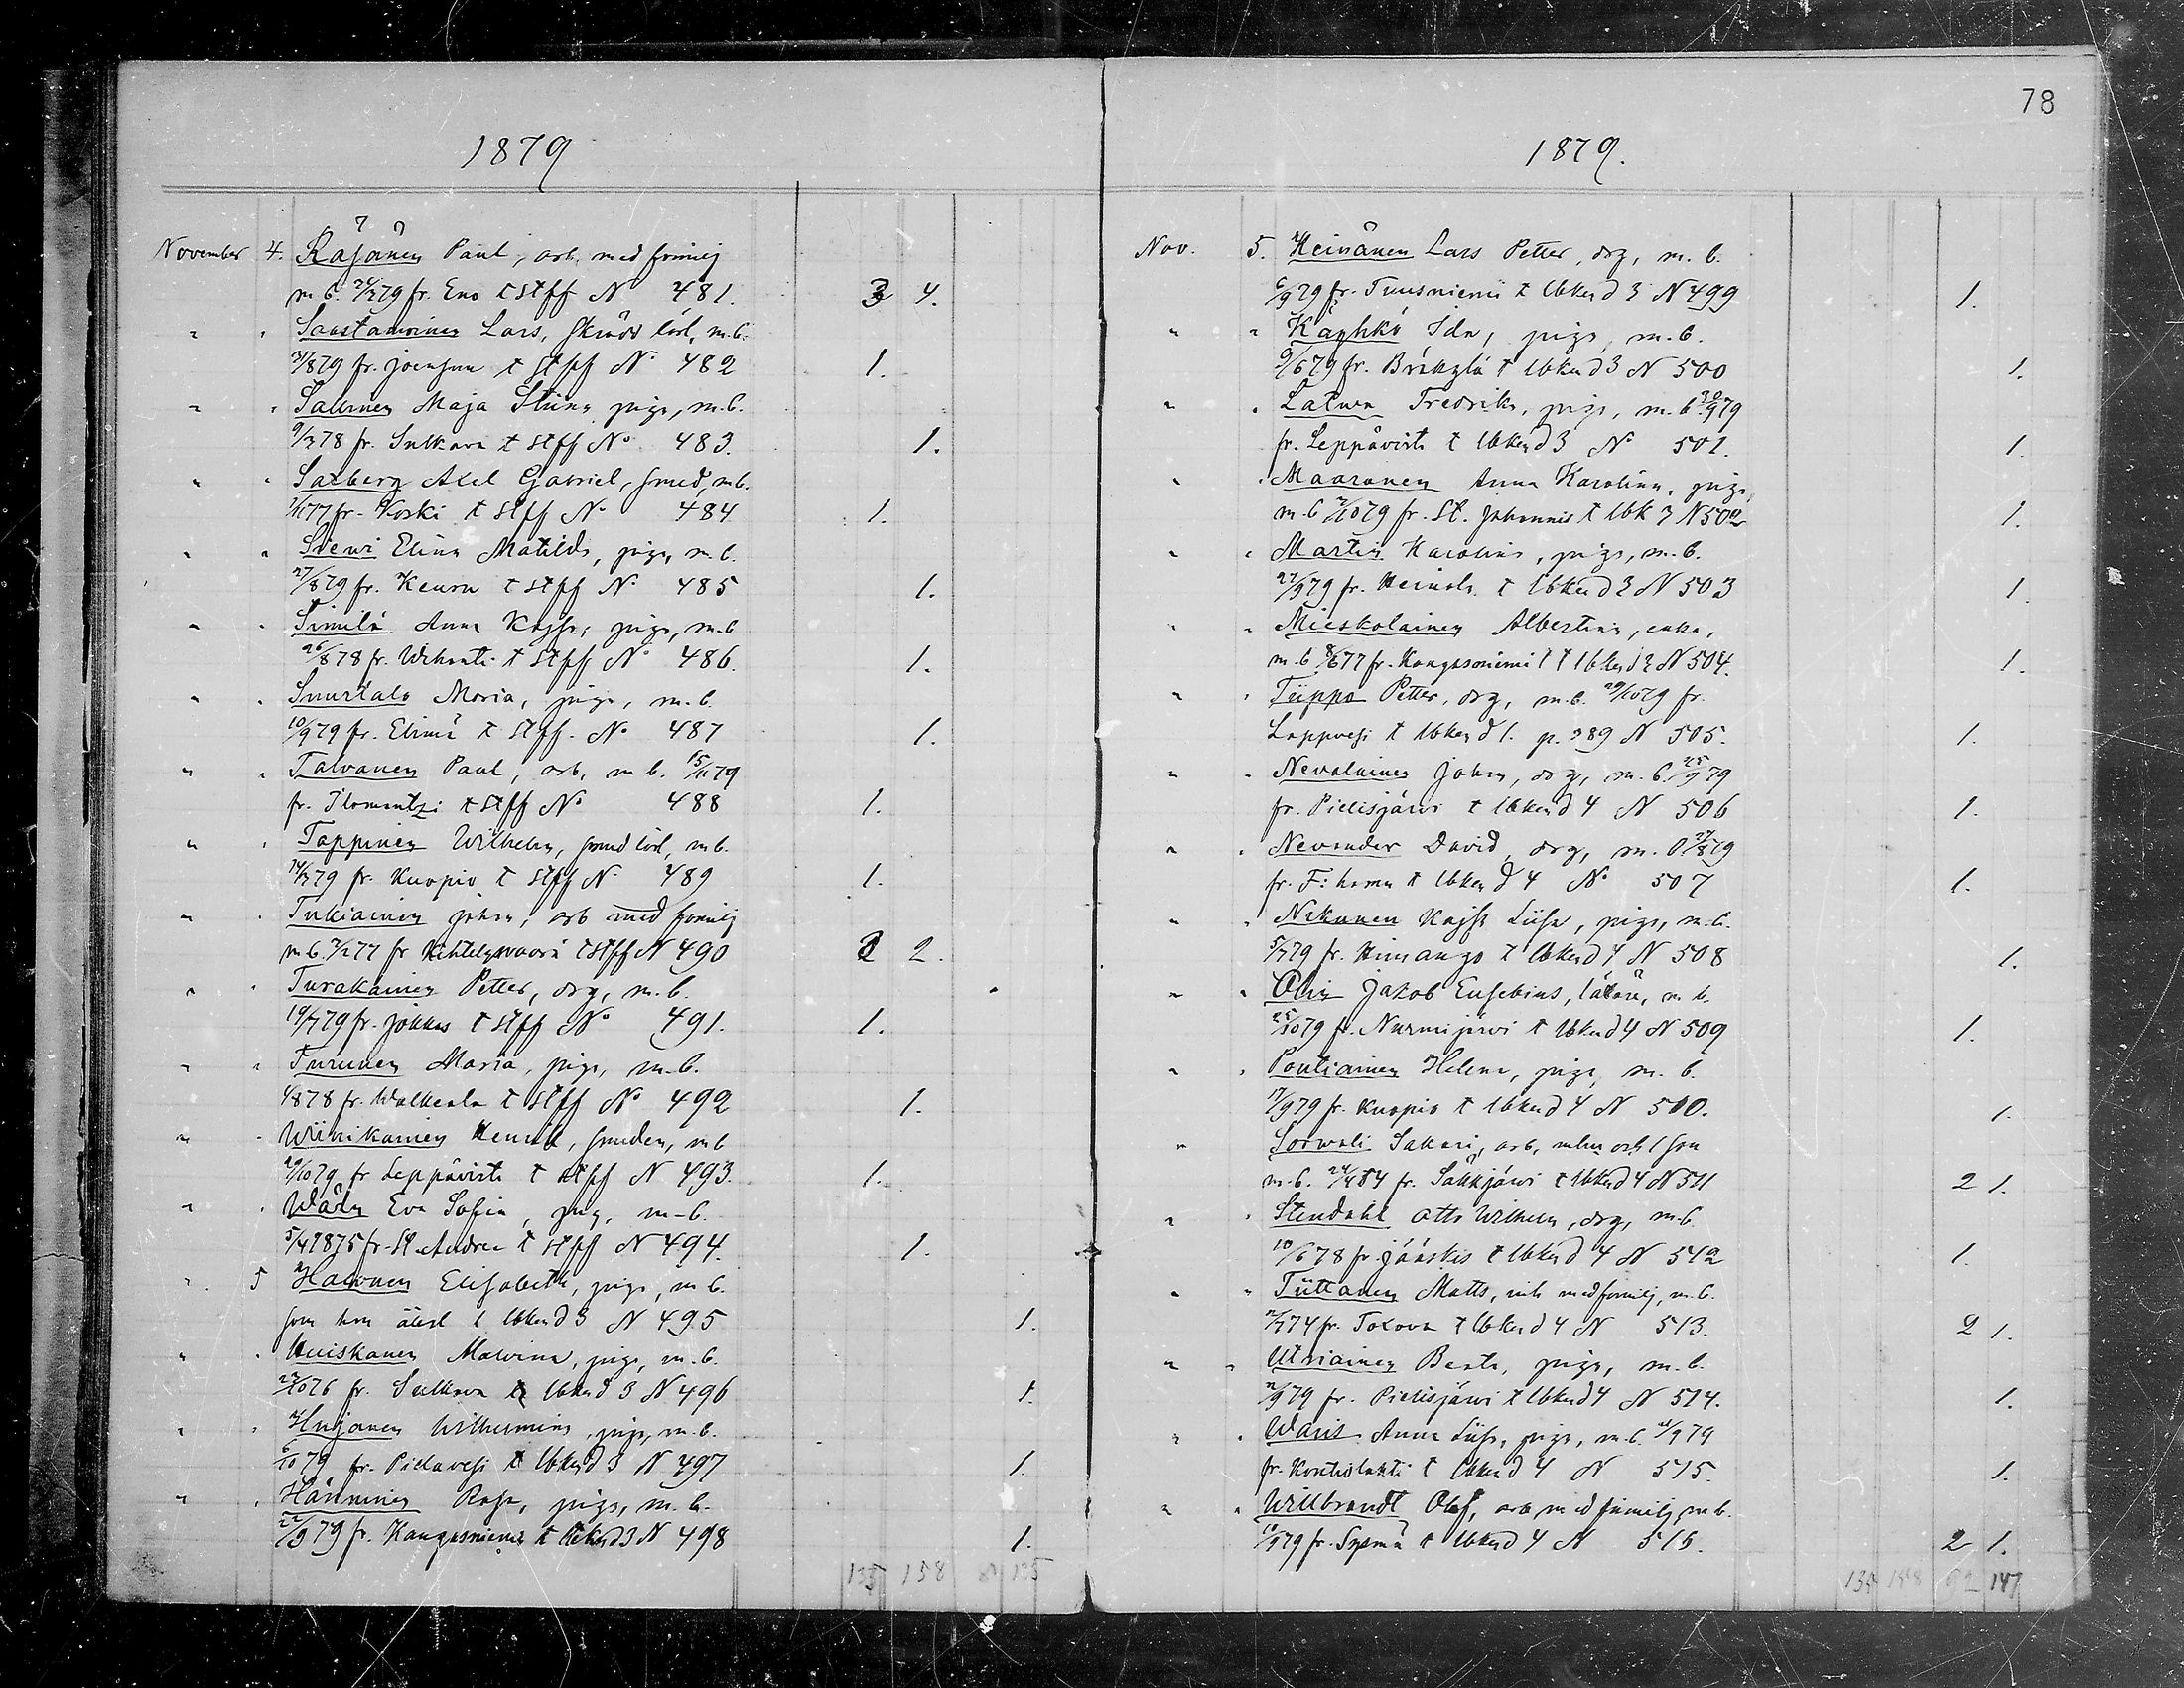 78
1879
November 4. Räsänen Paul, arb. med familj
m. b. 24/3 79 fr. Eno t Stff No 481. 3 4.
" " Saastamoinen Lars, lärl, m. b.
31/8 79 fr. Joensuu t Stff No 482 1.
" " Salonen Maja Stina piga, m. b.
9/3 78 fr. Sulkava t Stff No 483. 1.
" " Saxberg Axel Gabriel, smed, m b.
77 fr. Koski t Stff No 484 1.
" " Sieni Elina Matilda, piga, m. b.
27/8 79 fr. Keuru t Stff No 485 1.
" " Similä Anna Kajsa, piga, m. b
26/8 78 fr. Wihanti t Stff No 486. 1.
" " Suurtalo Maria, piga, m. b.
10/9 79 fr. Elimä t Stff. No 487 1.
" " Talvanen Paul, arb. m b. 79
fr. Ilomantzi t Stff No 488 1.
" " Tappinen Wilhelm, smed lärl, m b.
79 fr. Kuopio t Stff No 489 1.
" " Tukiainen Johan, arb med familj
m b. 77 fr Kihtelysvaara t Stff N 490 2 2.
" " Turakainen Petter, drg, m. b.
19/7 79 fr. Jokkas t Stff No 491. 1.
" " Turunen Maria, piga, m. b.
78 fr. Walkeala t Stff No 492 1.
" " Wiinikainen Henrik, m b
29/10 79 fr Leppävirta t Stff N 493. 1.
" " Eva Sofia, pig, m-b.
5/4 1875 fr. St. Andree t Stff N 494. 1.
" 5 Halonen Elisabeth, piga, m b.
som hon återl t Ubkend 3 N 495 1.
" " Huiskanen Malvina, piga, m. b.
24/10 76 fr. Sulkava t Ubkend 3 N 496 1.
" " Hujanen Wilhelmina, piga, m. b.
6/10 79 fr. Pielavesi t Ubkend 3 N 497 1.
" " Hänninen Rosa, piga, m. b.
22/9 79 fr. Kangasniemi t Ubkend 3 N 498 1.
135 158 135
1879.
Nov. 5. Heinänen Lars Petter, drg, m. b.
6/9 79 fr. Tuusniemi t Ubkend 3 N 499 1.
" " Käyhkö Ida, piga, m. b.
9/6 79 fr. Bräkylä t Ubkend 3 N 500 1.
" " Latwa Fredrika, piga, m. b. 30/9 79
fr. Leppävirta t Ubkend 3 No 501. 1.
" " Maaranen Anna Karolina, piga,
m. b 79 fr. St. Johannis t Ubk 3 N 502 1.
" " Martin Karolina, piga, m. b.
27/9 79 fr. Heinola t Ubkend 3 N 503 1.
" " Mieskolainen Albertina, enka,
m. b 8/6 77 fr. Kangasniemi t Ubkend 2 N 504. 1.
" " Tiippa Petter, drg, m. b. 29/10 79 fr.
Lappvesi t Ubkend 1. p. 389 N 505. 1.
" " Nevalainen Johan, drg, m. b. 25/9 79
fr. Pielisjärvi t Ubkend 4 N 506 1.
" " Nevander David, drg, m. b 27/8 79
fr. F:hamn t Ubkend 4 No 507 1.
" " Nikunen Kajsa Liisa, piga, m. b.
5/7 79 fr. Himango t Ubkend 4 N 508 1.
" " Olin Jakob Eusebius, m b.
25/10 79 fr. Nurmijärvi t Ubkend 4 N 509 1.
" " Poutiainen Helena, piga, m. b.
17/9 79 fr. Kuopio t Ubkend 4 N 510. 1.
" Sorwali Sakari, arb, och 1 son
m. b. fr. Säkkjärvi t Ubkend 4 N 511 2 1.
" " Stendahl Otto Wilhelm, drg, m. b.
10/6 78 fr. Jääskis t Ubkend 4 N 512 1.
" " Tiittanen Matts, med familj, m. b.
74 fr. Toxova t Ubkend 4 N 513. 2 1.
" " Utriainen Beata, piga, m. b.
79 fr. Pielisjärvi t Ubkend 4 N 514. 1.
" " Waris Anna Liisa, piga, m. b. 79
fr. Kontiolahti t Ubkend 4 N 515. 1.
" " Willbrandt Olof, arb med familj, m b.
10/9 79 fr. Sysmä t Ubkend 4 N 516. 2 1.
135 158 92 147